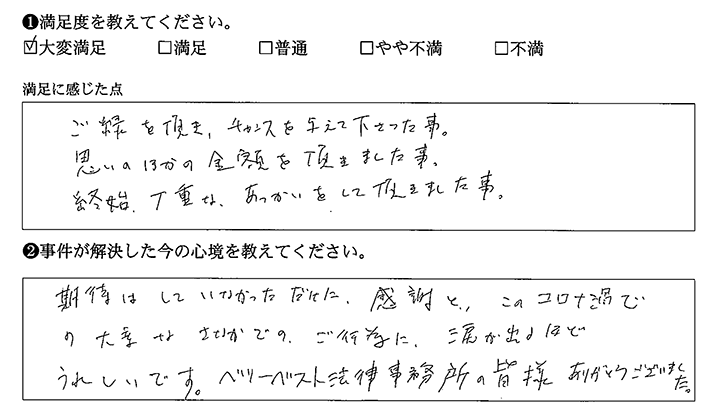 ❶満足度を教えてください。
☑大変満足 □満足 □普通 □やや不満 □不満
満足に感じた点
ご縁を頂き、チャンスを与えて下さった事。
思いのほかの金額を頂きました事。
終始、丁重な、あつかいをして頂きました事。
❷事件が解決した今の心境を教えてください。
期待はしていなかっただけに、感謝と、このコロナ渦で
の大変なさなかでの、ご行為に、涙が出るほど
うれしいです。ベリーベスト法律事務所の皆様ありがとうございました。